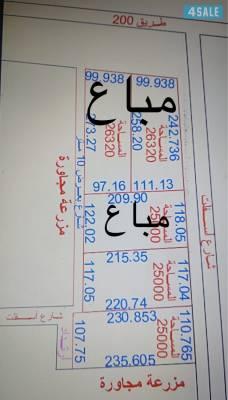 4SALE
طريق 200
99.938
99.938
مباع
242.736
المساحة
26320
258.20
المساحة
26320
273.27
شارع بعرض 10 متر
مزرعة مجاورة
97.16
111.13
209.90
مباع
118.05
المساحة
25000
122.02
شارع أسفلت
215.35
117.04
المساحة
25000
117.05
220.74
شارع أسفلت
230.853
110.765
المساحة
25000
107.75
235.605
مزرعة مجاورة